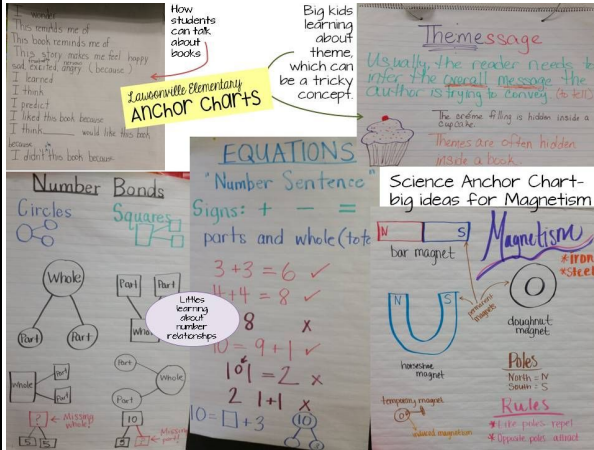 I wonder
This reminds me of
This book reminds me of
This story makes me feel happy
sad, excited, angry (because)
I learned
I think
I predict
I liked this book because
I think would like this book
because
I didn't this book because
How
students
can talk
about
books
Lawsonville Elementary
Anchor Charts
Big kids
learning
about
theme,
which can
be a tricky
concept.
Themessage
Usually, the reader needs to
infer the overall message the
author is trying to convey. (to tell)
The creme filling is hidden inside a
cupcake.
Themes are often hidden
inside a book.
Number Bonds
Circles
Squares
Whole
Part
Part
Part
Part
Whole
Whole
Part
Part
Part
Whole
Part
?
Missing
whole!
5
5
10
Missing
part!
Littles
learning
about
number
relationships
EQUATIONS
"Number Sentence"
Signs: + − =
parts and whole (tot
3+3=6 ✓
4+4=8 ✓
8 x
10=9+1 ✓
=2 x
2 1+1 x
10=□+3
10
Science Anchor Chart-
big ideas for Magnetism
Magnetism
*iron
*steel
N S
bar magnet
N S
horseshoe
magnet
permanent
magnets
doughnut
magnet
temporary magnet
induced magnetism
Poles
North = N
South = S
Rules
* Like poles repel
* Opposite poles attract